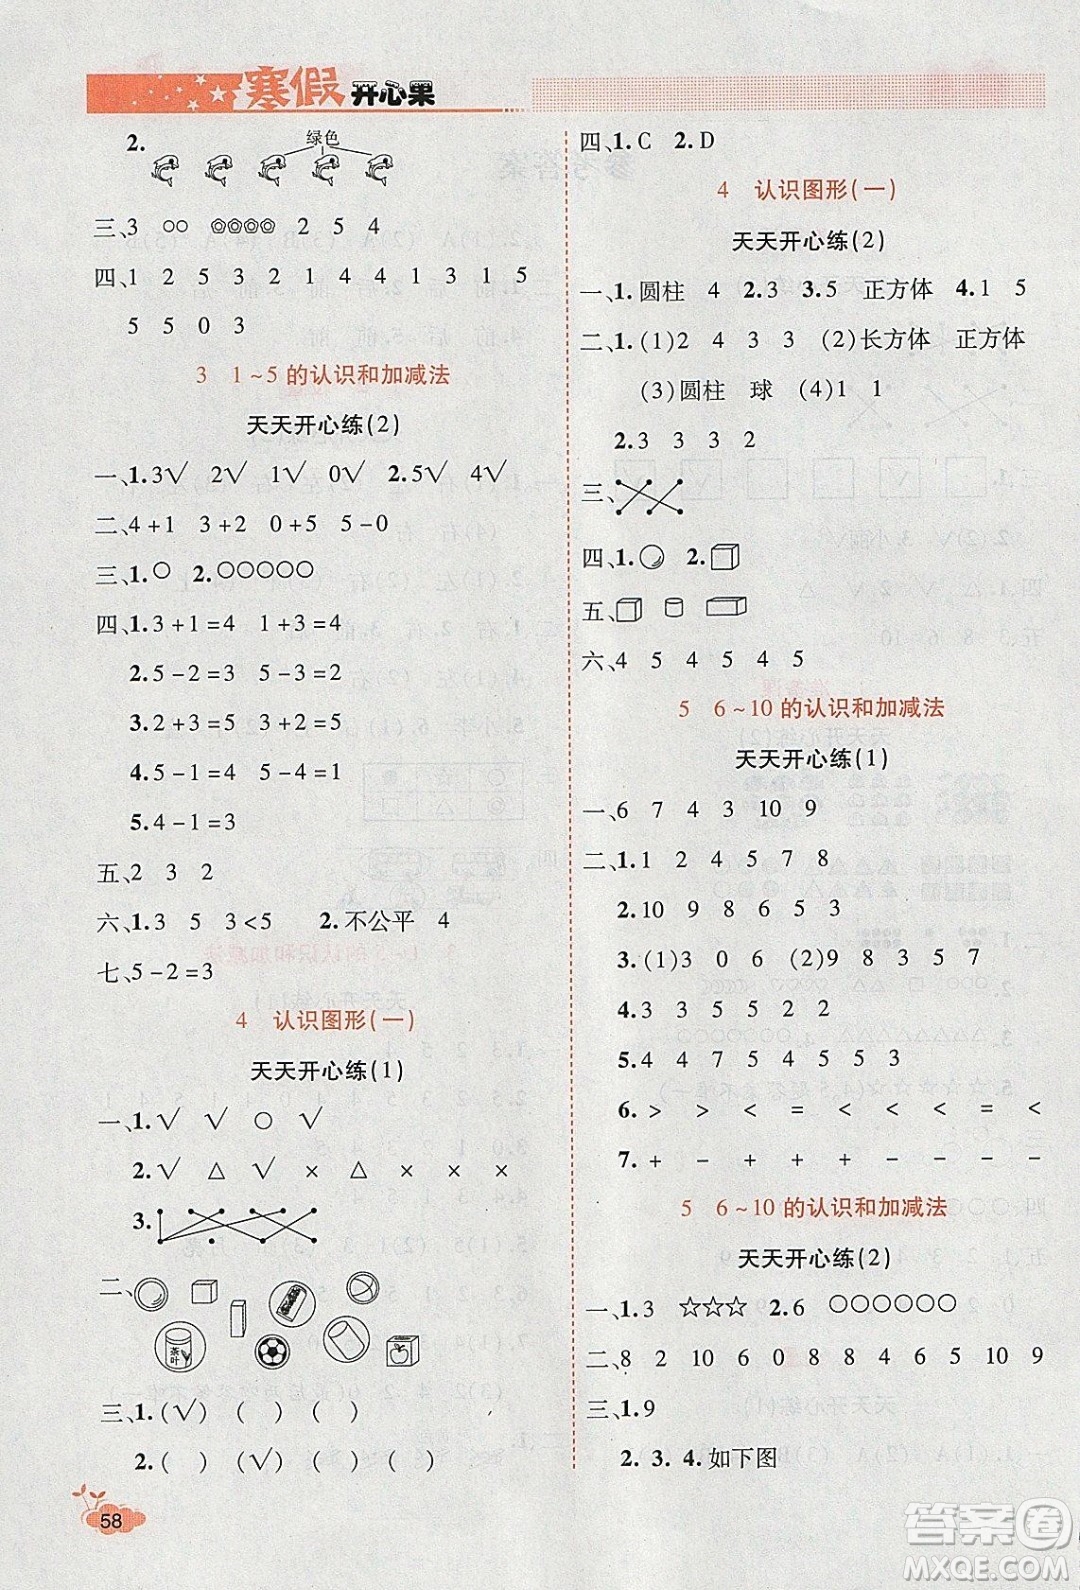 寒假开心果
2. 绿色
三、3 ○○ 2 5 4
四、1 2 5 3 2 1 4 4 1 3 1 5
5 5 0 3
3 1~5的认识和加减法
天天开心练(2)
一、1.3√ 2√ 1√ 0√ 2.5√ 4√
二、4+1 3+2 0+5 5-0
三、1.○ 2.○○○○○
四、1.3+1=4 1+3=4
2.5-2=3 5-3=2
3.2+3=5 3+2=5
4.5-1=4 5-4=1
5.4-1=3
五、2 3 2
六、1.3 5 3<5 2.不公平 4
七、5-2=3
4 认识图形(一)
天天开心练(1)
一、1.√ √ ○ √
2.√ △ √ × △ × × ×
3.
二、
茶叶
三、1.(√) ( ) ( )
2.( ) (√) ( ) ( )
58
四、1.C 2.D
4 认识图形(一)
天天开心练(2)
一、1.圆柱 4 2.3 3.5 正方体 4.1 5
二、1.(1)2 4 3 3 (2)长方体 正方体
(3)圆柱 球 (4)1 1
2.3 3 3 2
三、
四、1. 2.
五、
六、4 5 4 5 4 5
5 6~10的认识和加减法
天天开心练(1)
一、6 7 4 3 10 9
二、1.1 2 4 5 7 8 9
2.10 9 8 6 5 4 3
3.(1)3 5 6 (2)9 8 3 5 7
4.3 3 5 5 2 2
5.4 4 7 5 4 5 5 3
6.> > > = < < < = <
7.+ - + - + - - +
5 6~10的认识和加减法
天天开心练(2)
一、1.3 ☆☆☆ 2.6 ○○○○○○
二、8 2 10 6 0 8 8 5 10 9
三、1.9
2. 3. 4.如下图
答案圈
MXQE.COM